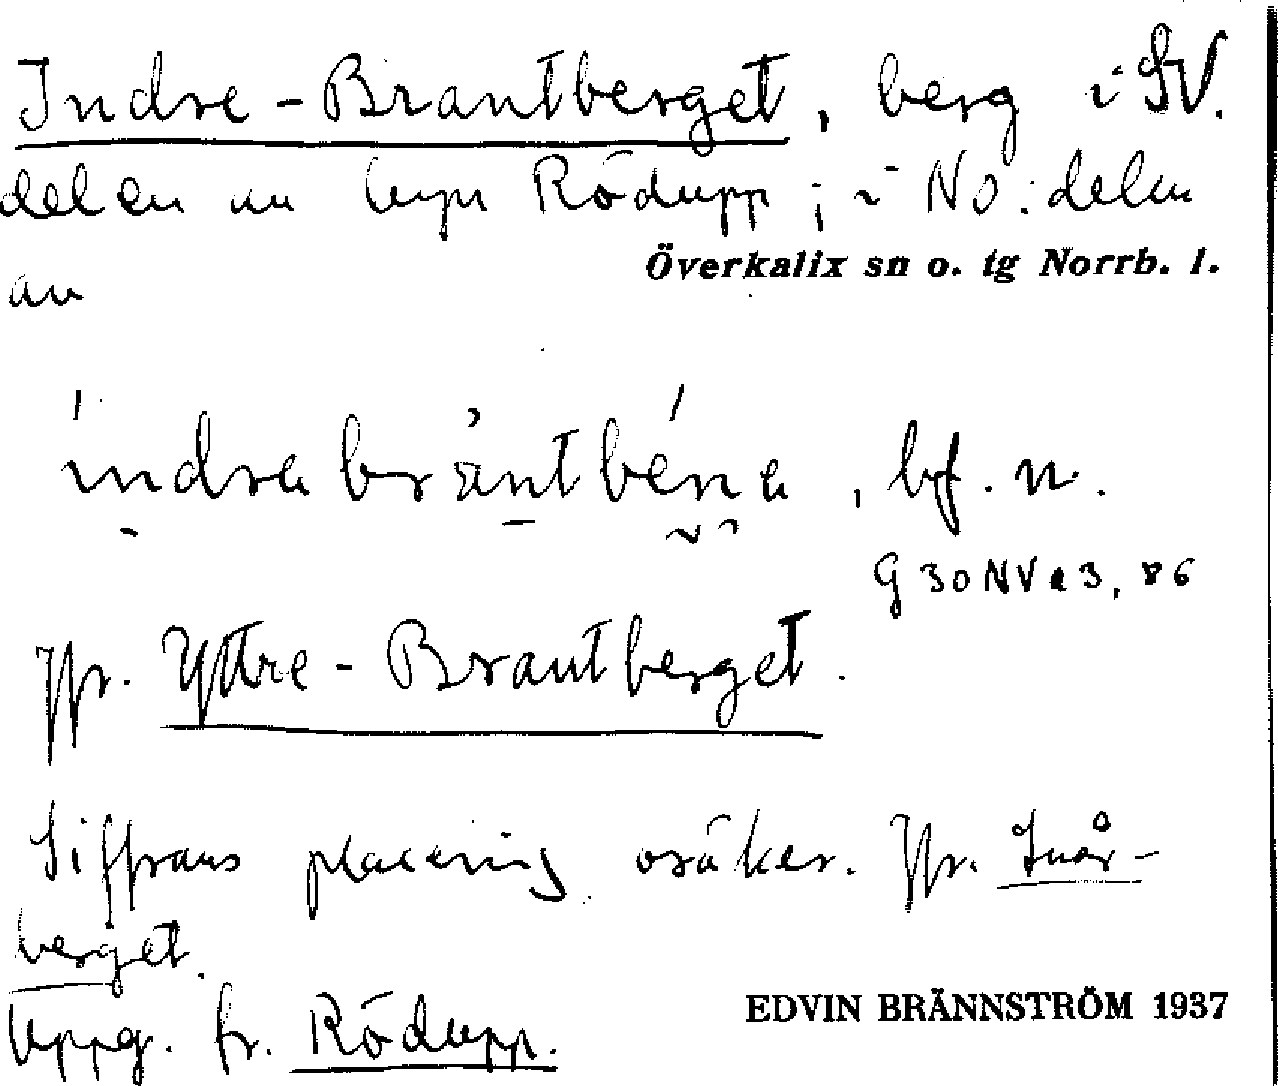 Indre-Brantberget, berg i SV.
delen av byn Rödupp; i NO:delen
Överkalix sn o. tg Norrb. l.
av
bf. n.
G 30 NV e 3, 86
Jfr. Yttre-Brantberget.
Siffrans placering osäker. Jfr.
berget.
Uppg. fr. Rödupp.
EDVIN BRÄNNSTRÖM 1937